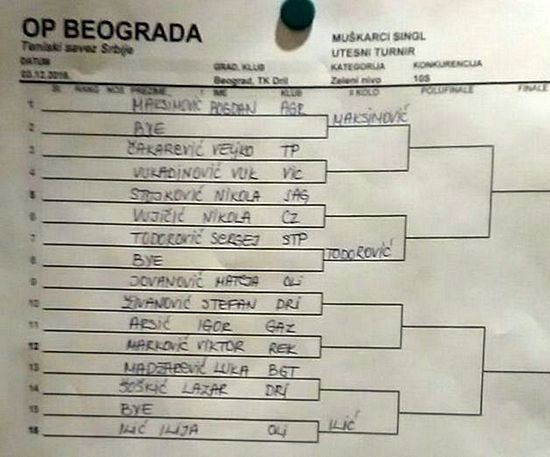 OP BEOGRADA
MUŠKARCI SINGL
Teniski savez Srbije
UTESNI TURNIR
DATUM GRAD, KLUB KATEGORIJA KONKURENCIJA
03.12.2016. Beograd, TK Dril Zeleni nivo 10S
St. RANG NOS PREZIME, IME KLUB II KOLO POLUFINALE FINALE
1 MAKSIMOVIĆ BOGDAN AGR MAKSIMOVIĆ
2 BYE
3 ČAKAREVIĆ VELJKO TP
4 VUKADINOVIĆ VUK VIC
5 STOJKOVIĆ NIKOLA SAG
6 VUJIČIĆ NIKOLA CZ
7 TODOROVIĆ SERGEJ STP TODOROVIĆ
8 BYE
9 JOVANOVIĆ MATEJA OLI
10 ŽIVANOVIĆ STEFAN DRI
11 ARSIĆ IGOR GAZ
12 MARKOVIĆ VIKTOR REK
13 MADŽAREVIĆ LUKA BGT
14 ŠOŠKIĆ LAZAR DRI
15 BYE ILIĆ
16 ILIĆ ILIJA OLI